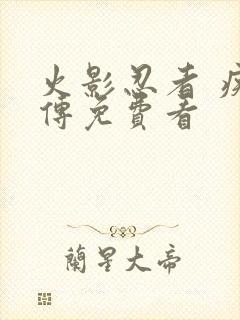 火影忍者 疾
傳免費看
蘭星大帝